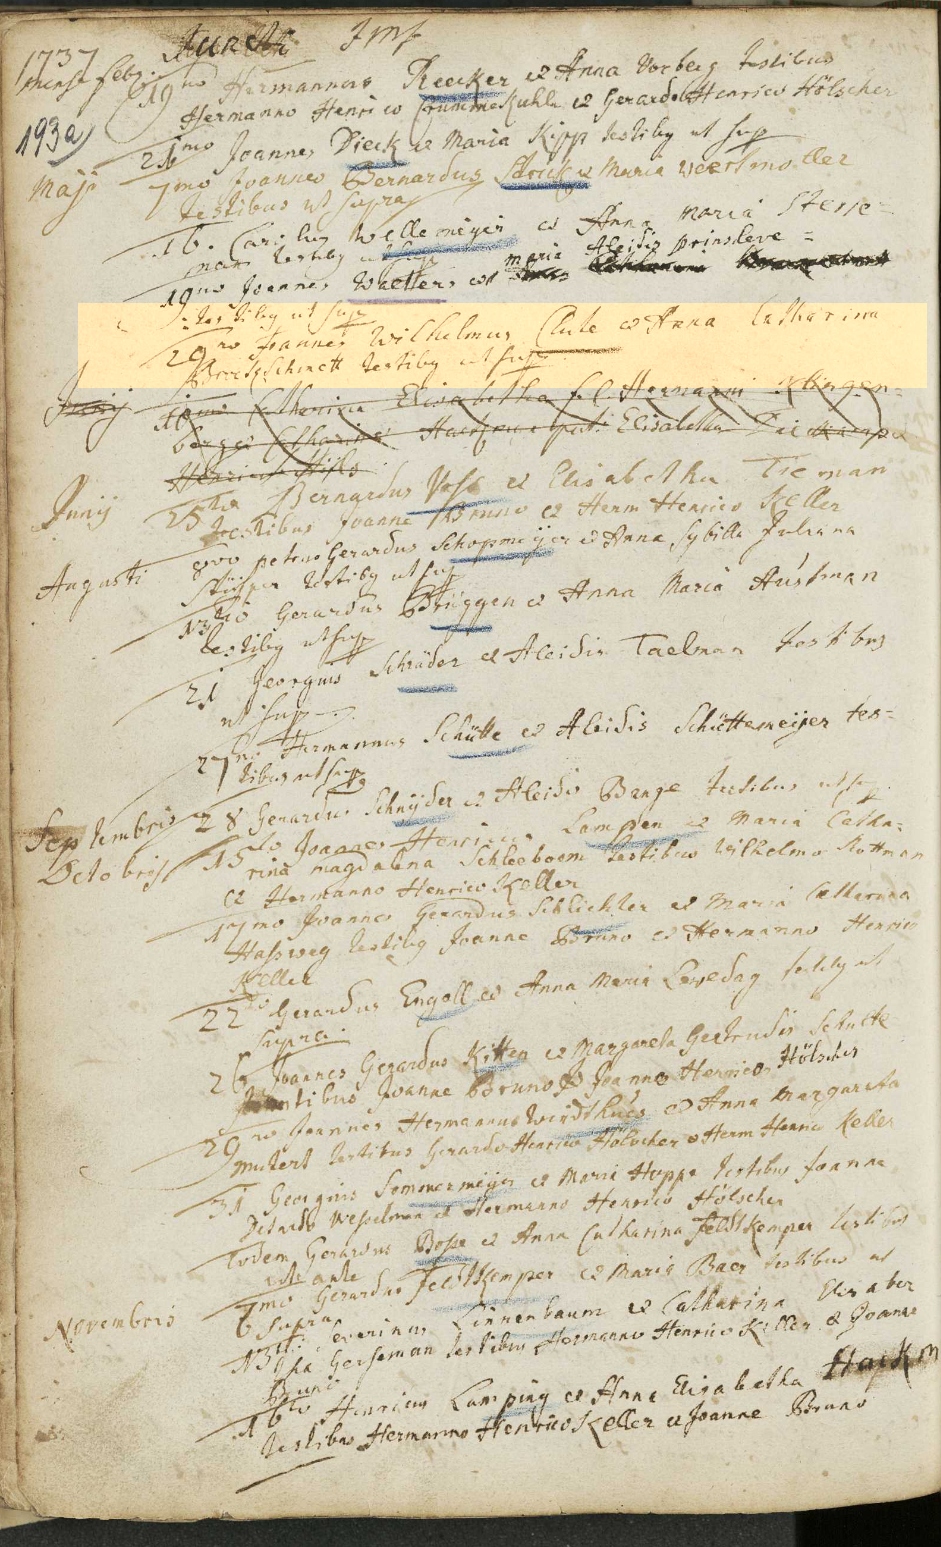 1737
mense Febr. 19no Hermannus Reecker et Anna Vorberg testibus
Hermanno Henrico et Gerardo Henrico Hölscher
193a
21mo Joannes Dieck et Maria Kipp testibq ut sup
Maji 7mo Joannes Bernardus et Maria
testibus ut supra
16. Carolus Wellemeijer et Anna Maria
man testibq ut sup
19no Joannes Walters et maria Aleidis
testibq ut sup
29no Joannes Wilhelmus Clute et Anna Catharina
testibq ut sup
Junij Catharina Elisabetha fil Hermanni Klingen=
berges Catharina Elisabetha
Henricus
Junij 25to Bernardus Voss et Elisabetha Tieman
testibus Joanne Bruno et Herm Henrico Keller
Augusti 8vo petrus Gerardus Schopmeijer et Anna Sybilla Juliana
testibq ut sup
13tio Gerardus Brüggen et Anna Maria Austman
testibq ut sup
21 Georgius Schräder et Aleidis Taelman testibus
ut sup
27mo Hermannus Schütte et Aleidis Schüttemeijer tes=
tibus ut sup
Septembris 28 Gerardus Schnijder et Aleidis Bange testibus ut sup
Octobris 15to Joannes Henricus Lampen et Maria Catha=
rina magdalena Schleeboem testibus Wilhelmo Rottman
et Hermanno Henrico Keller
17mo Joannes Gerardus Schlichter et Maria Catharina
Hassweg testibq Joanne Bruno et Hermanno Henrico
Keller
22do Gerardus Engell et Anna Maria testibq ut
supra
26 Joannes Gerardus Kitten et Margareta Gertrudis Schutte
testibus Joanne Bruno et Joanne Henrico Hölscher
29no Joannes Hermannus et Anna Margareta
testibus Gerardo Henrico Hölscher et Herm Henrico Keller
31 Georgius Sommermeijer et Maria Huppe testibus Joanne
Wesselman et Hermanno Henrico Hölscher
Eodem Gerardus Bosse et Anna Catharina Feldtkemper testibus
ut ante
Novembris 7mo Gerardus Feldtkemper et Maria Baer testibus ut
supra
13tio Severinus Linnenbaum et Catharina Elisabet
ha Gerseman testibus Hermanno Henrico Keller et Joanne
Bruno
16to Henricus Lamping et Anna Elisabetha
testibus Hermanno Henrico Keller et Joanne Bruno